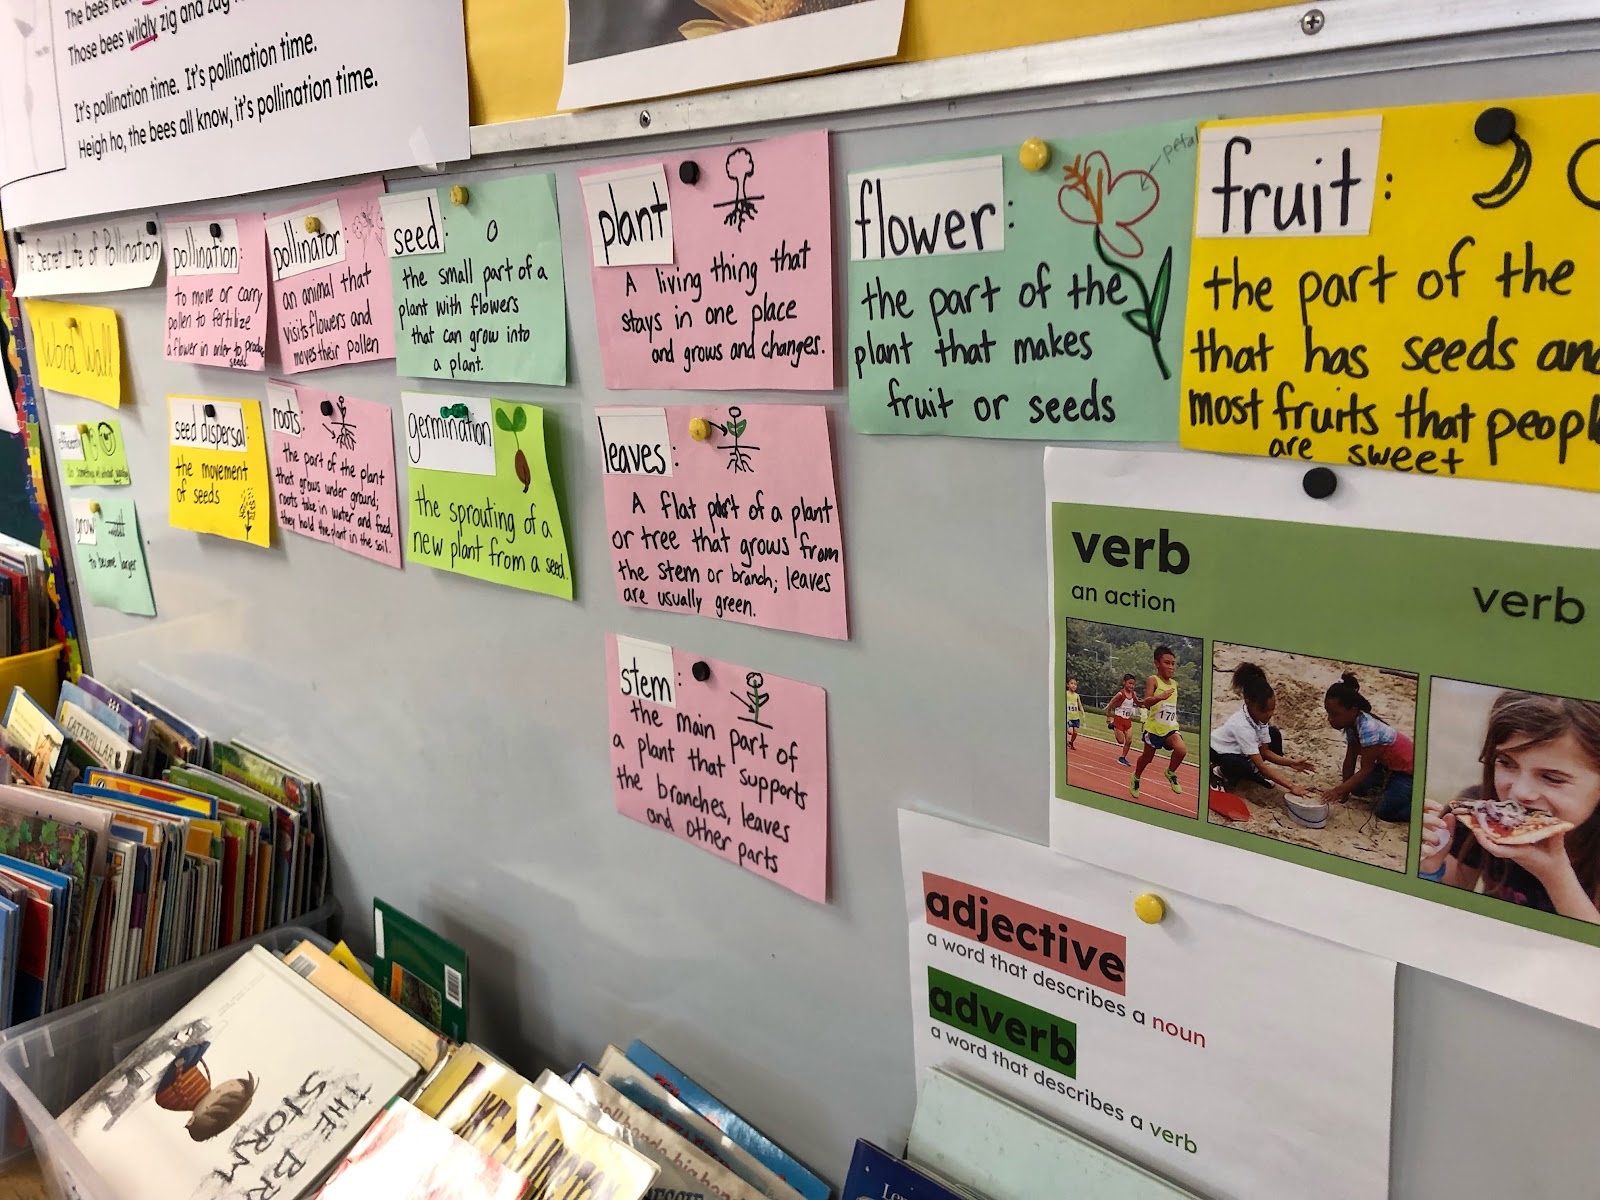 The bees
Those bees wildly zig and zag
It's pollination time. It's pollination time.
Heigh ho, the bees all know, it's pollination time.
The Secret Life of Pollination
Word Wall
efficiently
grow
to become larger
pollination:
to move or carry
pollen to fertilize
a flower in order to produce
seeds.
pollinator:
an animal that
visits flowers and
moves their pollen
seed:
the small part of a
plant with flowers
that can grow into
a plant.
seed dispersal:
the movement
of seeds
roots:
the part of the plant
that grows under ground;
roots take in water and food,
they hold the plant in the soil.
germination
the sprouting of a
new plant from a seed.
plant
A living thing that
stays in one place
and grows and changes.
leaves:
A flat part of a plant
or tree that grows from
the stem or branch; leaves
are usually green.
stem:
the main part of
a plant that supports
the branches, leaves
and other parts
flower:
petal
the part of the
plant that makes
fruit or seeds
fruit:
the part of the
that has seeds and
most fruits that peopl
are sweet
verb
an action
verb
170
adjective
a word that describes a noun
adverb
a word that describes a verb
CATERPILLAR
THE
STORM